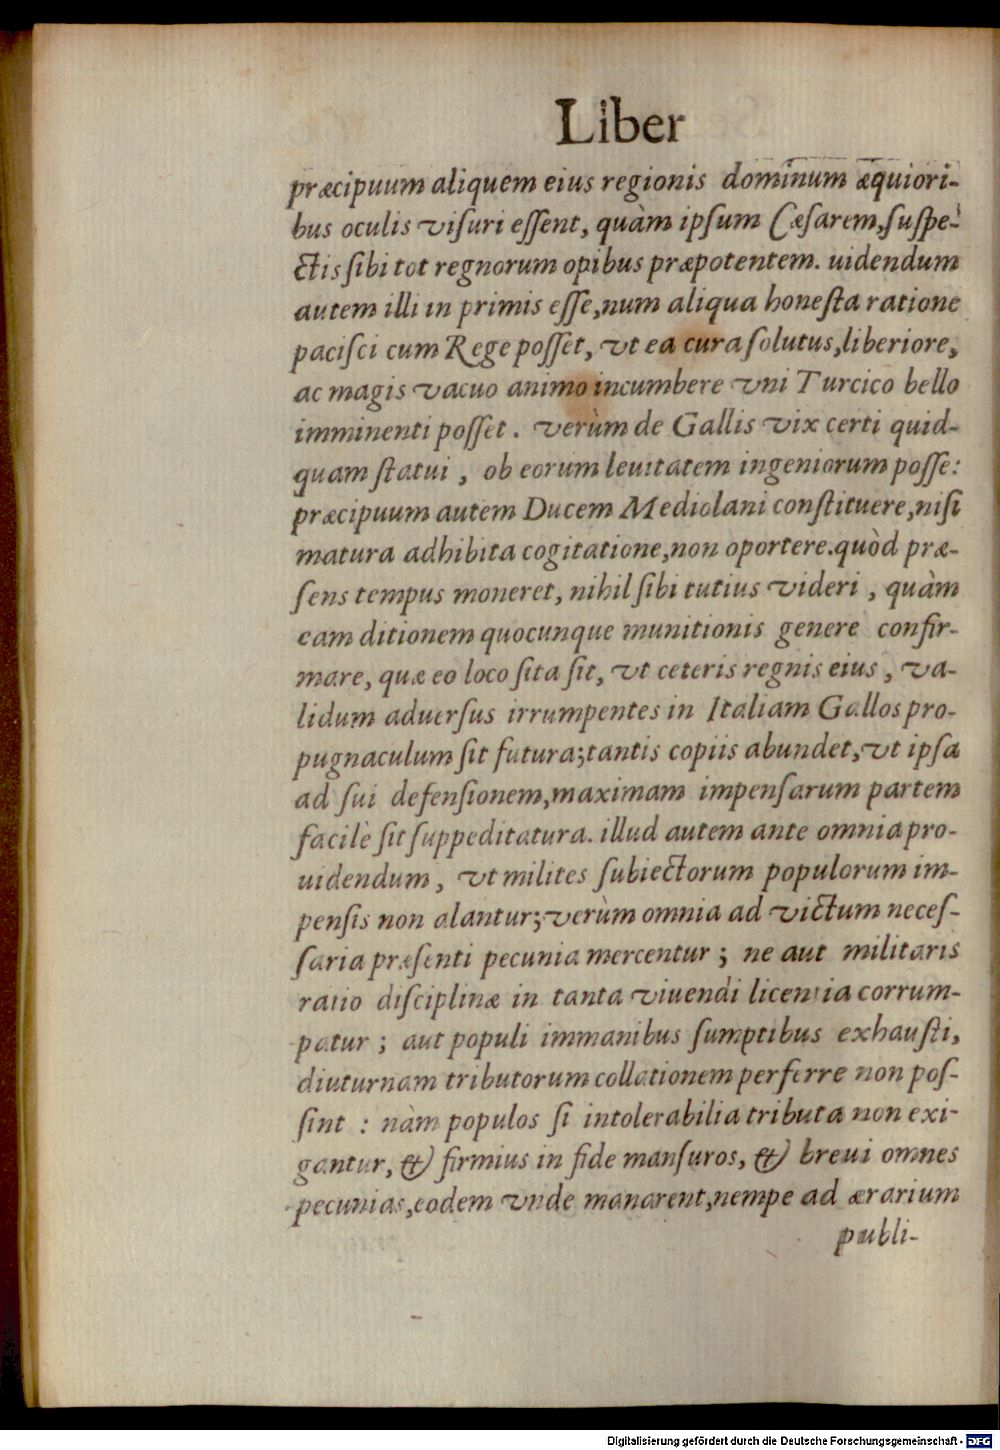 Liber
præcipuum aliquem eius regionis dominum æquiori-
bus oculis viſuri eſſent, quàm ipſum Cæſarem, ſuſpe-
ctis ſibi tot regnorum opibus præpotentem. uidendum
autem illi in primis eſſe, num aliqua honeſta ratione
paciſci cum Rege poſſet, vt ea cura ſolutus, liberiore,
ac magis vacuo animo incumbere vni Turcico bello
imminenti poſſet. verùm de Gallis vix certi quid-
quam ſtatui, ob eorum leuitatem ingeniorum poſſe:
præcipuum autem Ducem Mediolani conſtituere, niſi
matura adhibita cogitatione, non oportere. quòd præ-
ſens tempus moneret, nihil ſibi tutius videri, quàm
eam ditionem quocunque munitionis genere confir-
mare, quæ eo loco ſita ſit, vt ceteris regnis eius, va-
lidum aduerſus irrumpentes in Italiam Gallos pro-
pugnaculum ſit futura; tantis copiis abundet, vt ipſa
ad ſui defenſionem, maximam impenſarum partem
facilè ſit ſuppeditatura. illud autem ante omnia pro-
uidendum, vt milites ſubiectorum populorum im-
penſis non alantur; verùm omnia ad victum neceſ-
ſaria præſenti pecunia mercentur; ne aut militaris
ratio diſciplinæ in tanta viuendi licentia corrum-
patur; aut populi immanibus ſumptibus exhauſti,
diuturnam tributorum collationem perferre non poſ-
ſint: nàm populos ſi intolerabilia tributa non exi-
gantur, & firmius in fide manſuros, & breui omnes
pecunias, eodem vnde manarent, nempe ad ærarium
publi-
Digitalisierung gefördert durch die Deutsche Forschungsgemeinschaft - DFG